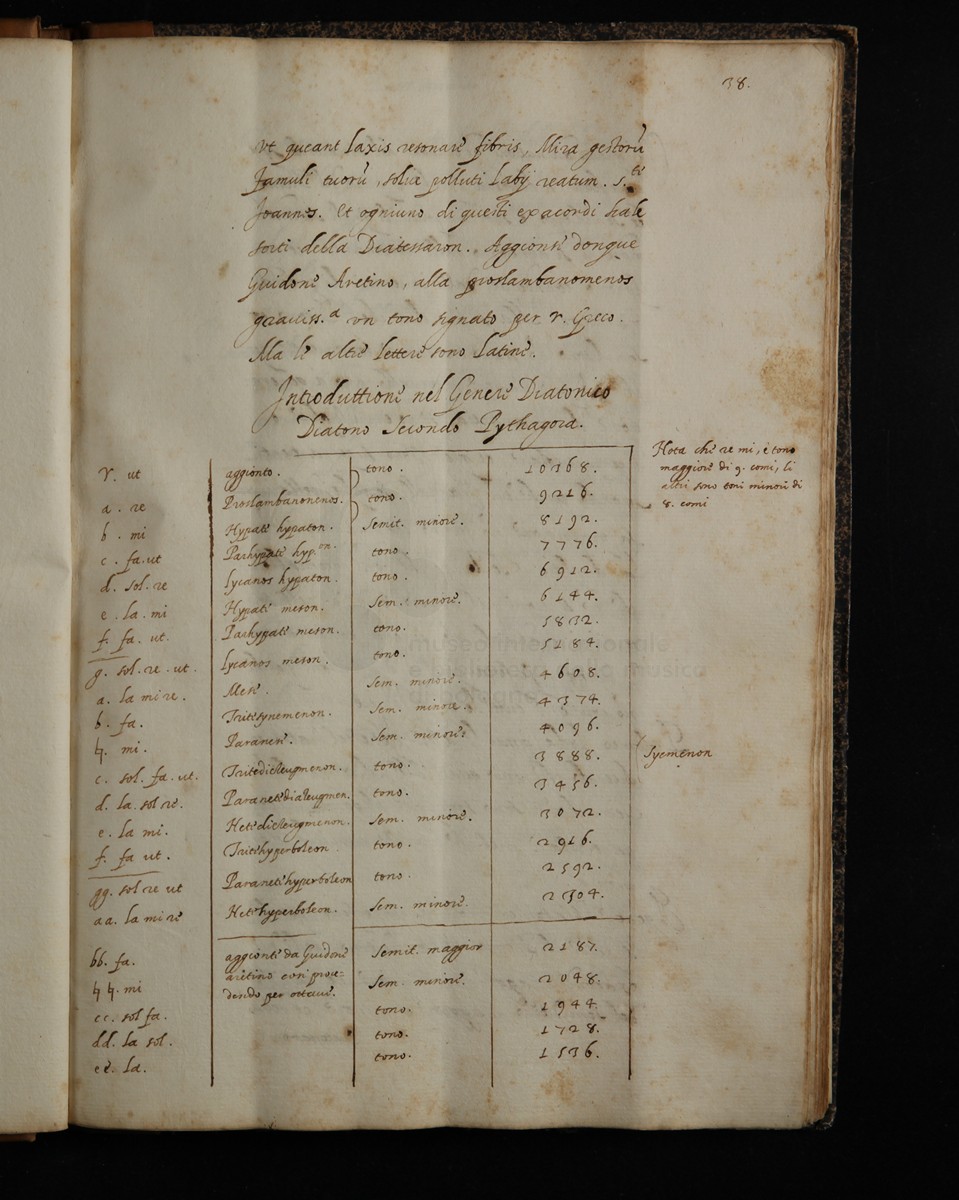 38.
Vt queant laxis resonare fibris, Mira gestorũ
famuli tuorũ, solve polluti labij reatum. S.te
Joannes. Et ogniuno di questi exacordi hale
sorti della Diatessaron. Aggionse donque
Guidone Aretino, alla proslambanomenos
graviss.a vn tono signato per r. Greco.
Ma le altre lettere sono latine.
Introduttione nel Genere Diatonico
Diatono Secondo Pythagora.
Nota che re mi, è tono
maggiore di 9. comi, li
altri sono toni minori di
8. comi
r. ut | aggionto. | tono. | 10368.
a. re | Proslambanonenos. | tono. | 9216.
b. mi | Hypate hypaton. | Semit. minore. | 8192.
c. fa. ut | Parhypate hyp.on. | tono. | 7776.
d. sol. re | Lycanos hypaton. | tono. | 6912.
e. la. mi | Hypate meson. | Sem. minore. | 6144.
f. fa. ut. | Parhypate meson. | tono. | 5832.
g. sol. re. ut. | Lycanos meson. | tono. | 5184.
a. la mi re. | Mese. | Sem. minore. | 4608.
b. fa. | Tritesynemenon. | Sem. minore. | 4374.
♮. mi. | Paramese. | Sem. minore: | 4096.
c. sol. fa. ut. | Tritediezeugmenon. | tono. | 3888.
Syemenon
d. la. sol re. | Paranetediazeugmen. | tono. | 3456.
e. la mi. | Netediezeugmenon. | Sem. minore. | 3072.
f. fa ut. | Tritehyperboleon | tono. | 2916.
gg. sol re ut | Paranetehyperboleon | tono. | 2592.
aa. la mi re | Netehyperboleon. | Sem. minore. | 2304.
bb. fa. | aggionte da Guidone | Semit. maggior | 2187.
♮♮. mi | aretino con proce- | Sem. minore. | 2048.
cc. sol fa. | dendo per ottave. | tono. | 1944
dd. la sol. | tono. | 1728.
ee. la. | tono. | 1536.
museo internazionale
e biblioteca della musica